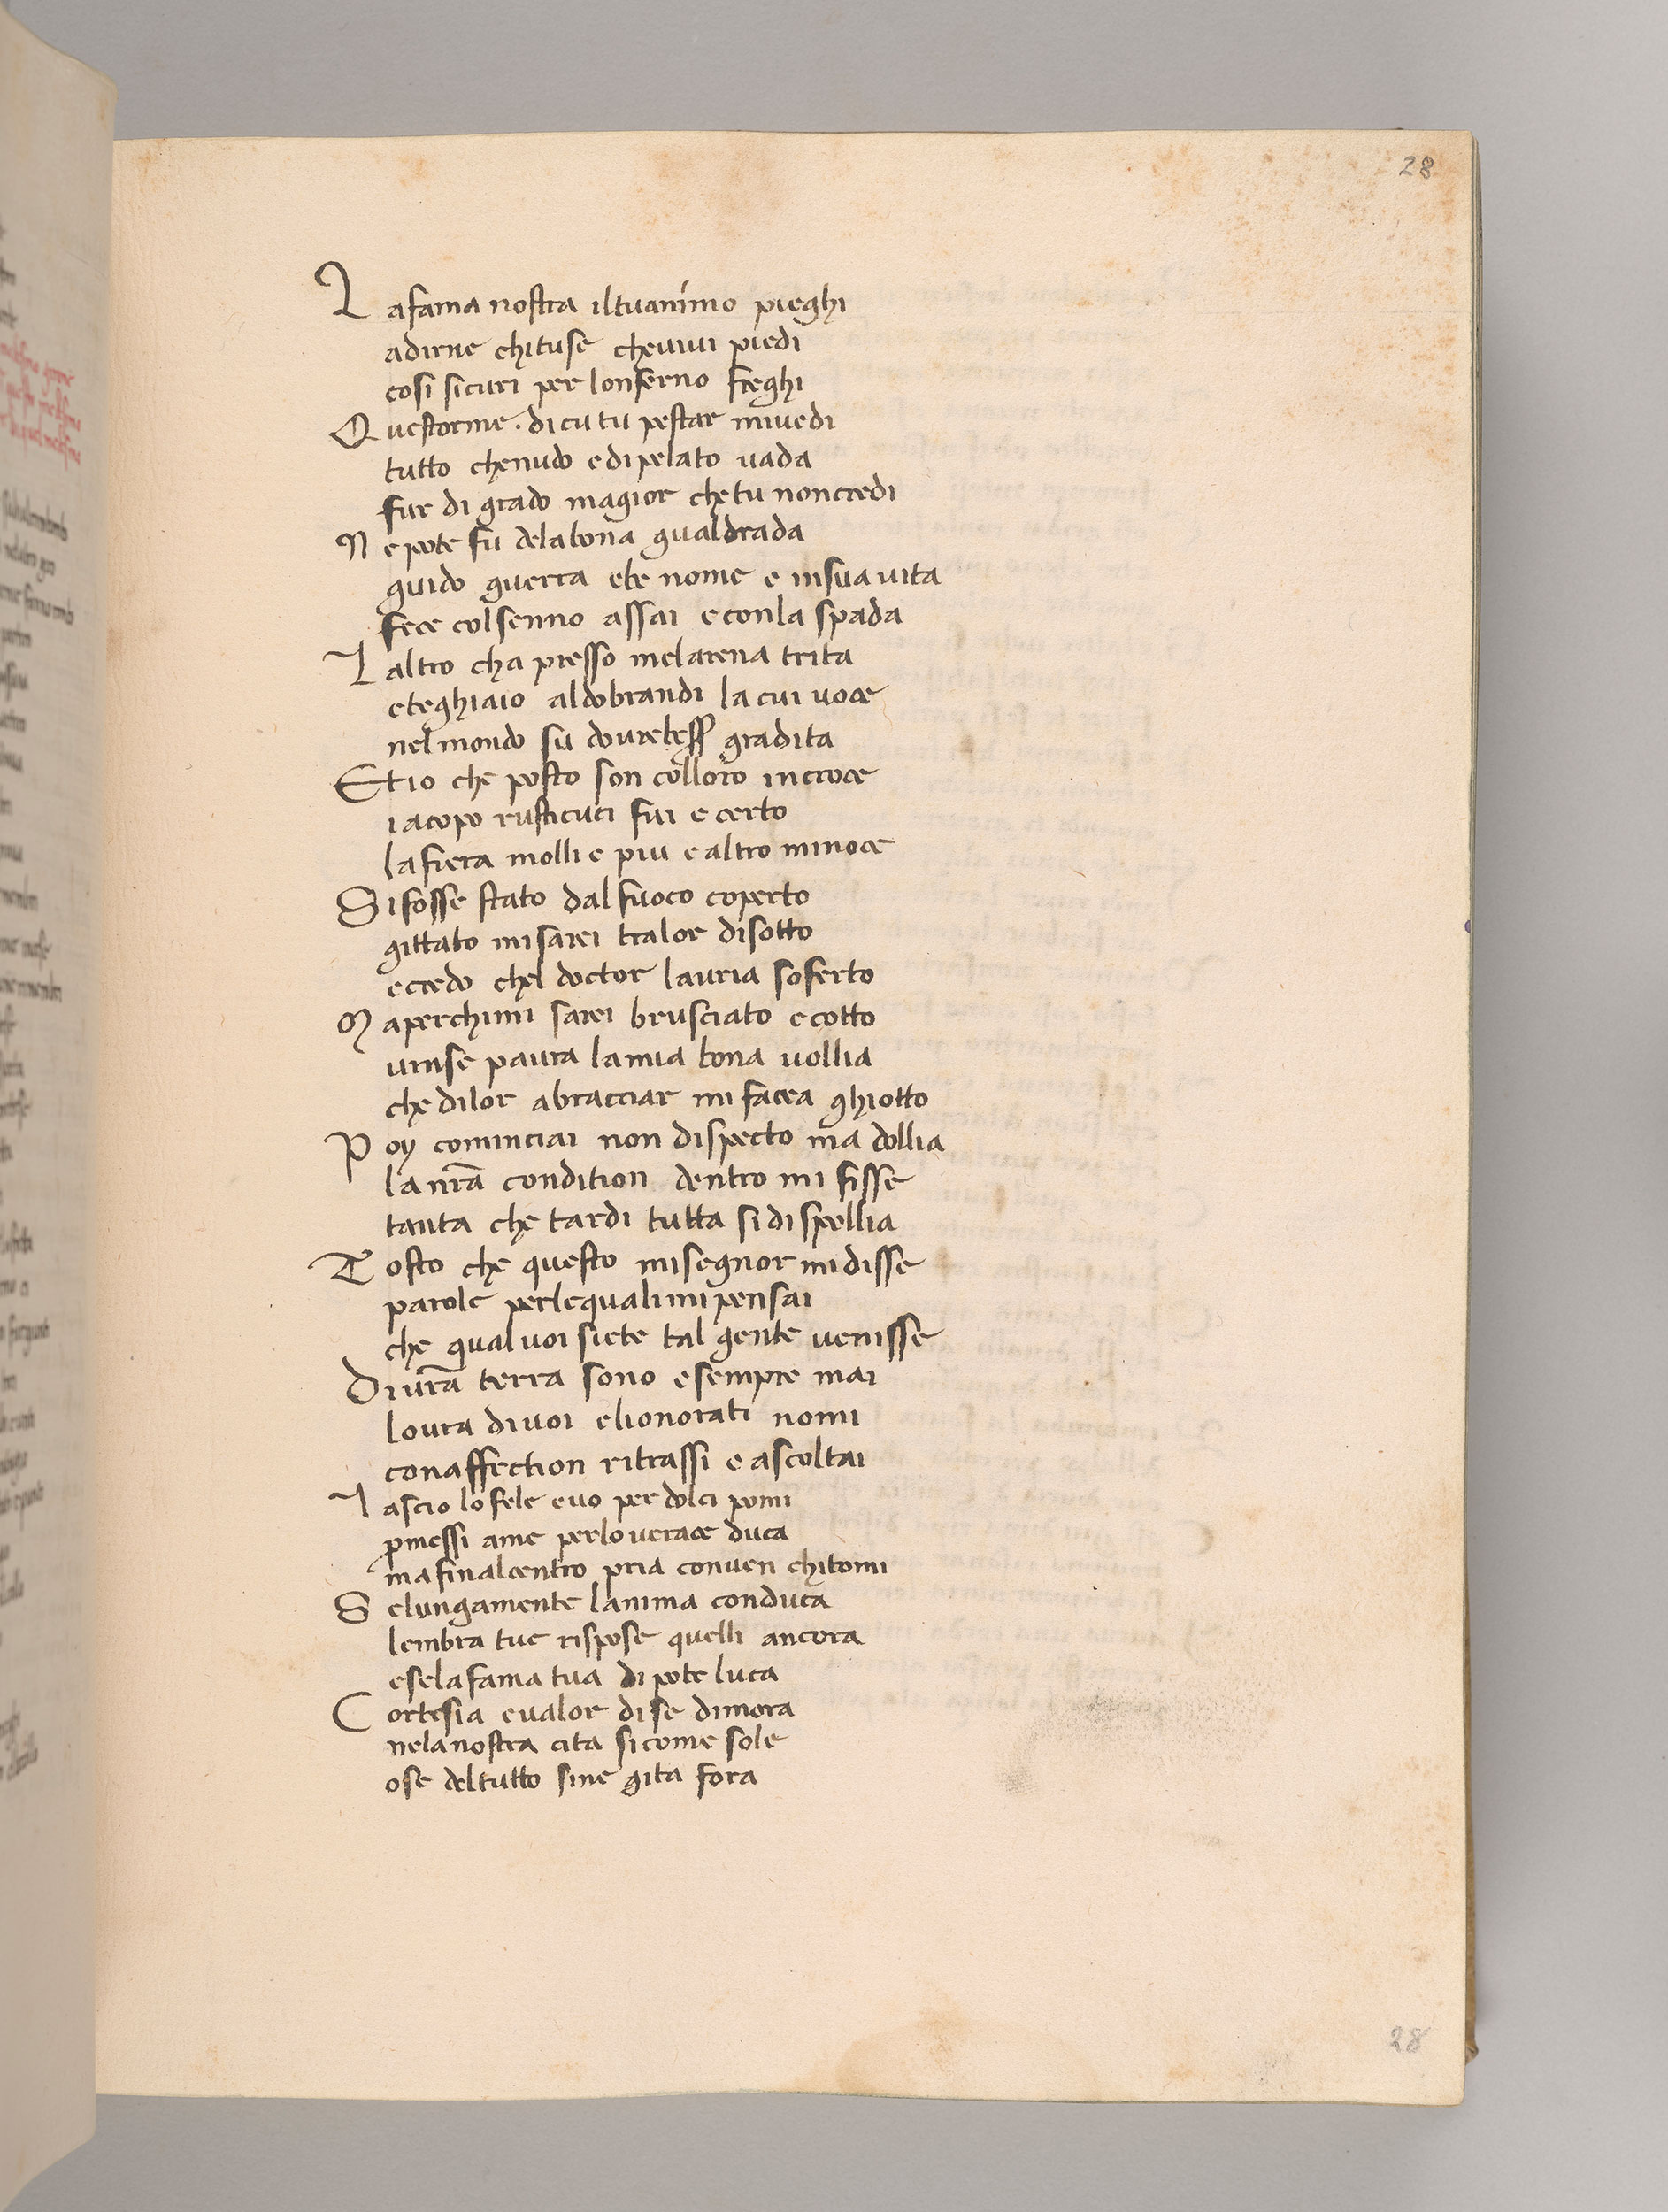 28
La fama nostra il tuo animo pieghi
adirne chituse cheuiui piedi
cosi sicuri per lonferno freghi
Questorme . di cu tu pestar miuedi
tutto chenudo edipelato uada
fur di grado magior chetu noncredi
Nepote fu delabona gualdrada
guido guerra ebe nome e insua uita
fece colsenno assai econla spada
Laltro cha presso melarena trita
eteghiaio aldobrandi lacui uoce
nel mondo su dourebess gradita
Et io che posto son colloro incroce
iacopo rusticuci fui e certo
lafiera molli e piu e altro minoce
Si fosse stato dal fuoco coperto
gittato misarei tralor disotto
ecredo chel doctor lauria soferto
Maperchimi sarei brusciato ecotto
uinse paura lamia bona uollia
che dilor abracciar mi facea ghiotto
Poy cominciai non dispecto ma dollia
la nrã condition dentro mi fisse
tanta che tardi tutta sidispellia
Tosto che questo misegnor midisse
parole perlequalimipensai
che qual uoi siete tal gente uenisse
Diurã terra sono esempre mai
loura diuoi elionorati nomi
conaffection ritrassi e ascoltai
Lascio lo fele euo per dolci pomi
pmessi ame perlouerace duca
mafinalcentro pria conuen chitomi
Selungamente lanima conduca
lembra tue rispose quelli ancora
eselafama tua dipote luca
Cortesia eualor dise dimora
nelanostra cita sicome sole
ose deltutto sine gita fora
28